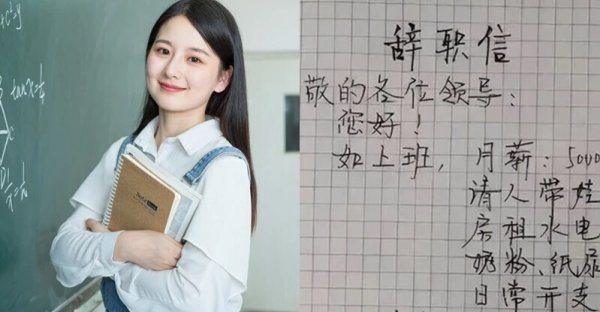 辞职信
敬的各位领导：
您好！
如上班，月薪：5000
请人带娃
房租水电
奶粉、纸尿
日常开支